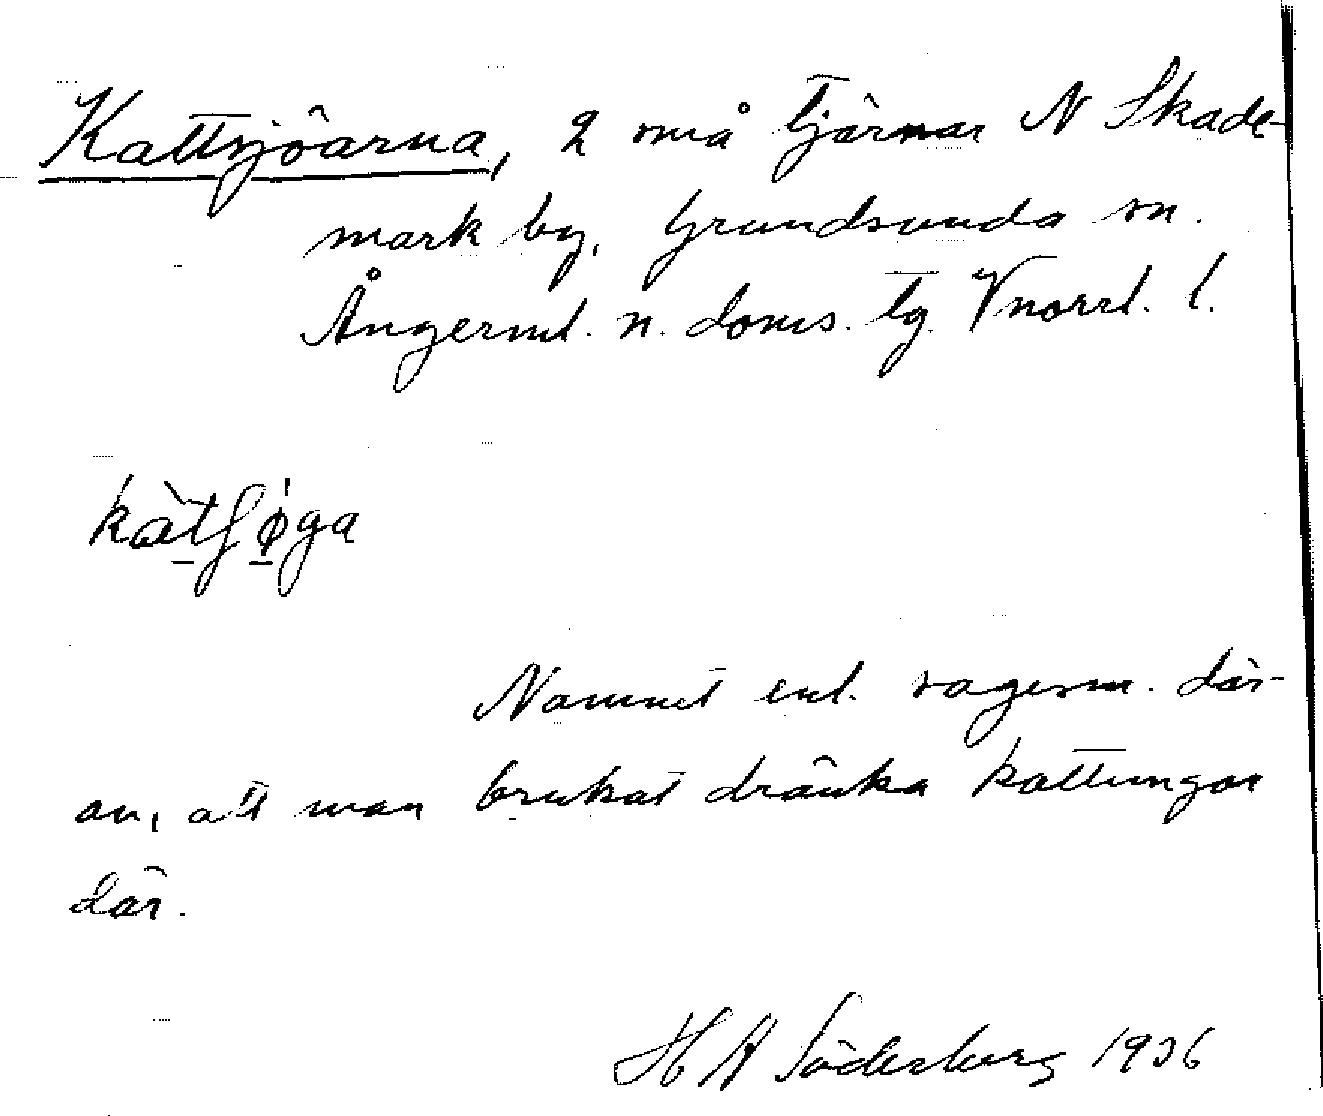 Kattsjöarna, 2 små tjärnar N Skade-
mark by, Grundsunda sn.
Ångerml. n. doms. tg. Vnorrl. l.
kàtʃø̀ga
Namnet enl. sagesm. där-
av, att man brukat dränka kattungar
där.
H A Söderberg 1936